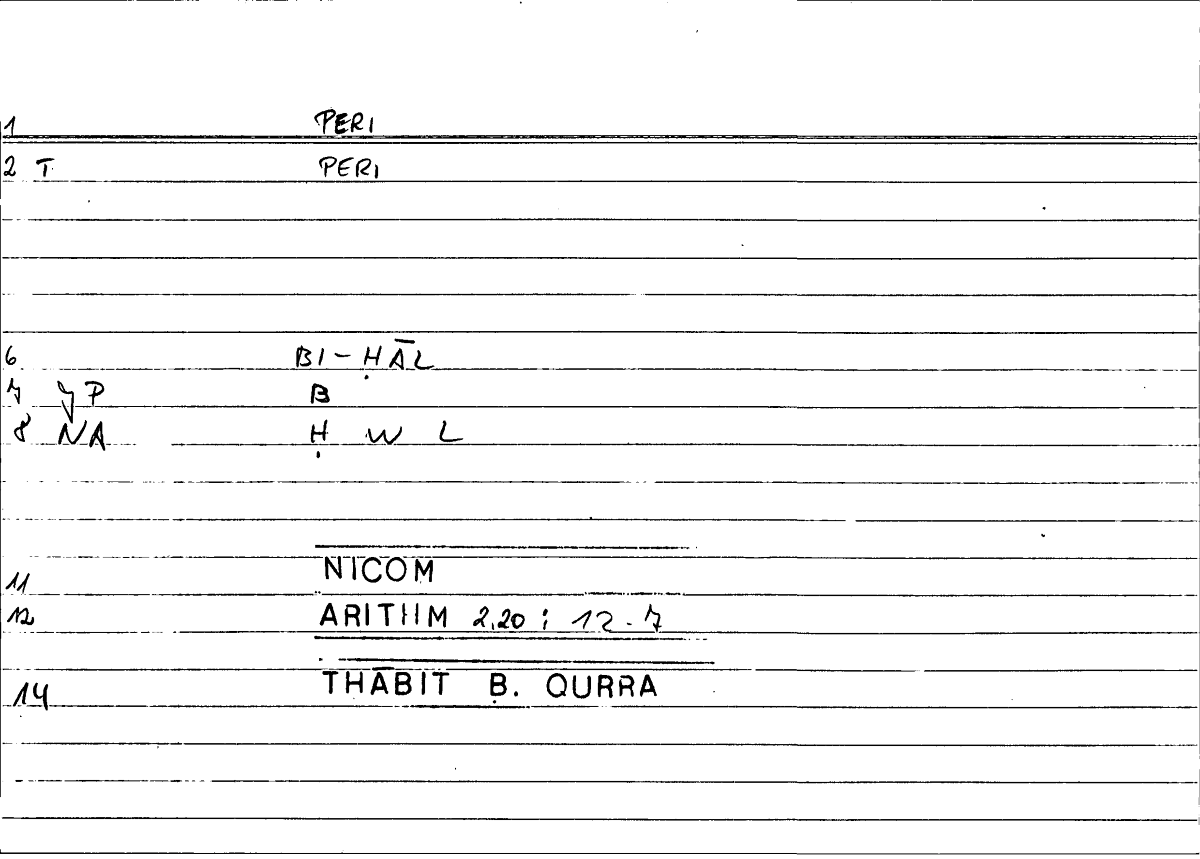 1 PERI
2 T. PERI
6 BI-ḤĀL
7 P B
8 NA Ḥ W L
11 NICOM
12 ARITHM 2.20 : 12-7
14 THĀBIT B. QURRA